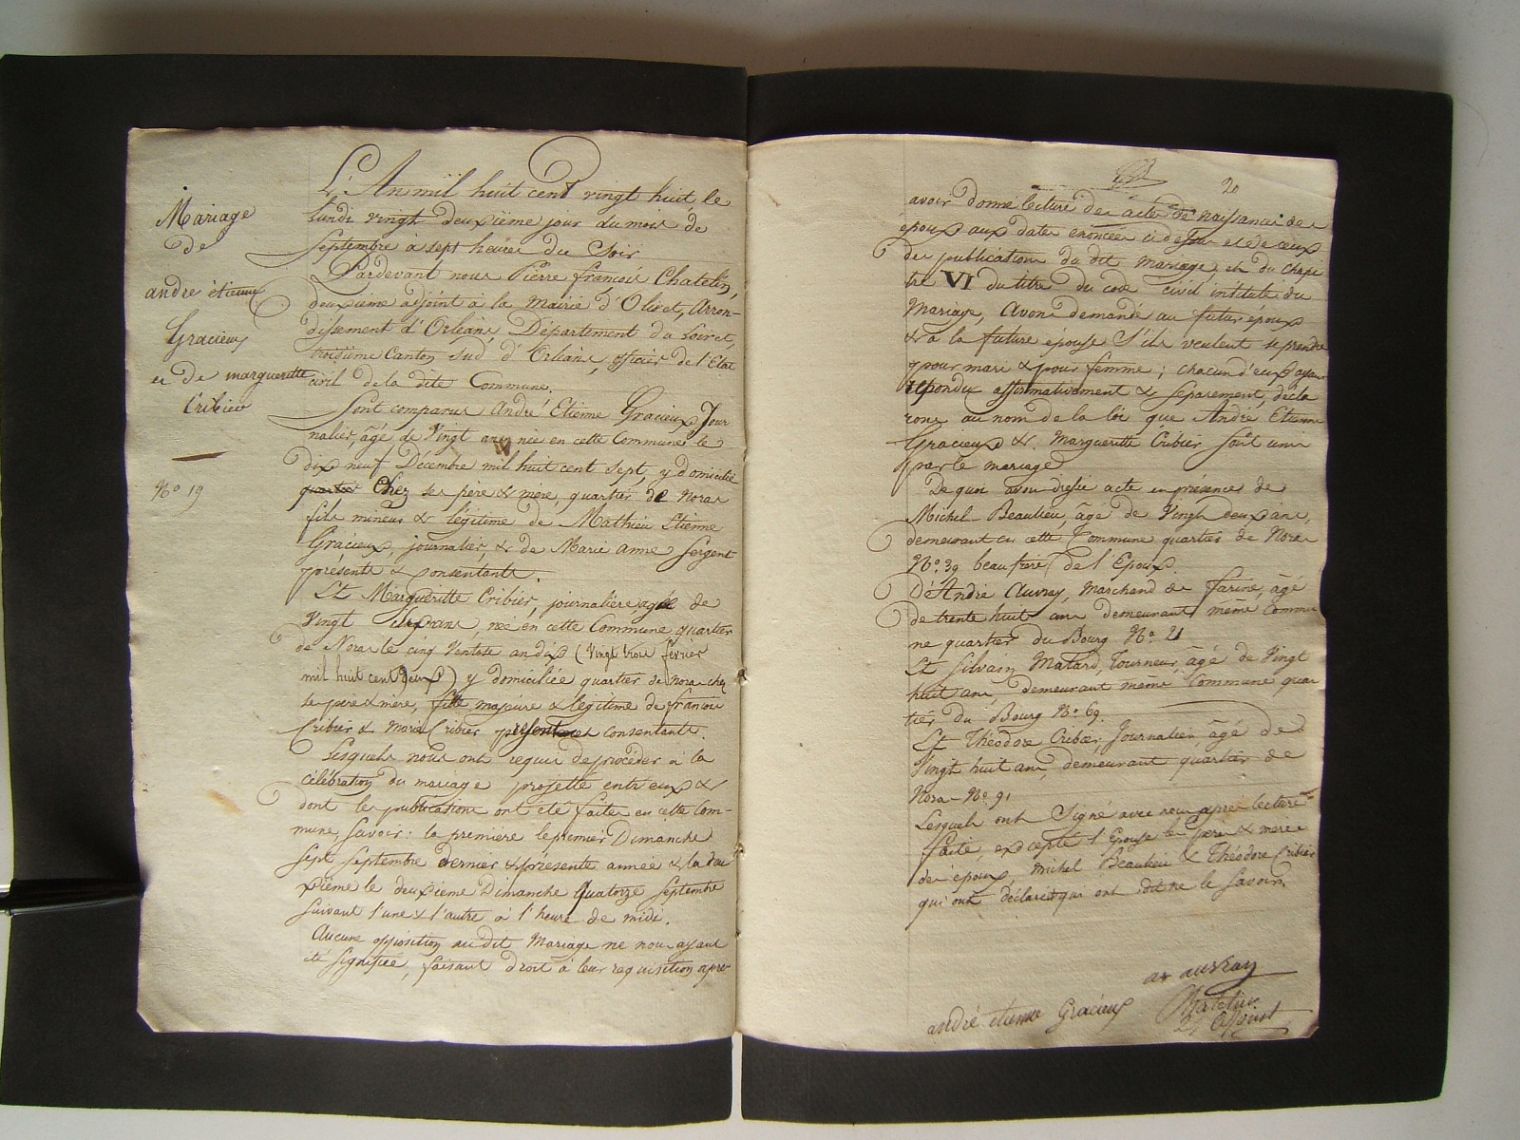 Mariage
de
andré étienne
Gracieux
et de marguerite
Cribier
N.o 19
L'An mil huit cent vingt huit, le
lundi vingt deuxième jour du mois de
Septembre à sept heures du Soir
Pardevant nous Pierre françois Chatelin,
deuxième adjoint à la Mairie d'Olivet, Arron-
dissement d'Orléans, Département du Loiret,
troisième Canton Sud d'Orléans, officier de l'Etat
civil de la dite Commune.
Sont comparus André Etienne Gracieux Jour
nalier, âgé de Vingt ans, née en cette Commune le
dix neuf Décembre mil huit cent sept, y domicilié
chez ses père & mère, quartier de Noras
fils mineur & légitime de Mathieu Etienne
Gracieux, journalier, & de Marie anne Sergent
présents & consentants.
Et Margueritte Cribier, journalière agée de
Vingt Six ans, née en cette Commune quartier
de Noras le cinq Ventose an dix (Vingt trois fevrier
mil huit cent deux) y domiciliée quartier de Noras chez
ses père & mère, fille majeure & légitime de françois
Cribier & Marie Cribier présents et consentants.
Lesquels nous ont requis de procéder à la
célébration du mariage projetté entr'eux &
dont les publications ont été faites en cette Com-
mune, Savoir: la première le premier Dimanche
Sept Septembre dernier & présente année & la deu
xième le deuxième Dimanche Quatorze Septembre
suivant l'une & l'autre à l'heure de midi.
Aucune opposition au dit Mariage ne nous ayant
été signifiée, faisant droit à leur requisition apres
20
avoir donné lecture des actes de naissances des
epoux aux dates énoncées ci dessus et de ceux
des publications du dit mariage, et du chapi
tre VI du titre du code civil intitulé du
Mariage, Avons demandé au futur epoux
& à la future épouse S'ils veulent se prendre
pour mari & pour femme; chacun d'eux ayant
répondu affirmativement & séparement, décla
rons au nom de la loi que André Etienne
Gracieux & Margueritte Cribier sont unis
par le mariage
De quoi avons dressé acte en présences de
Michel Beaulieu, âgé de Vingt deux ans,
demeurant en cette Commune quartier de Noras
N.o 39 beau frère de l'Epoux.
D'André Auvray, Marchand de farine, âgé
de trente huit ans demeurant même Commu
ne quartier du Bourg N.o 21
Et Silvain Matard, Tourneur, âgé de Vingt
huit ans demeurant même Commune quar
tier du Bourg N.o 69.
Et Théodore Cribier, Journalier, âgé de
Vingt huit ans, demeurant quartier de
Noras N.o 91
Lesquels ont Signé avec nous après lecture
faite excepté l'Epouse les père & mère
des epoux, Michel Beaulieu & Théodore Cribier
qui ont déclaré qui ont dit ne le savoir
ar auvray
andré etienne Graciéux
Chatelin
adjoint